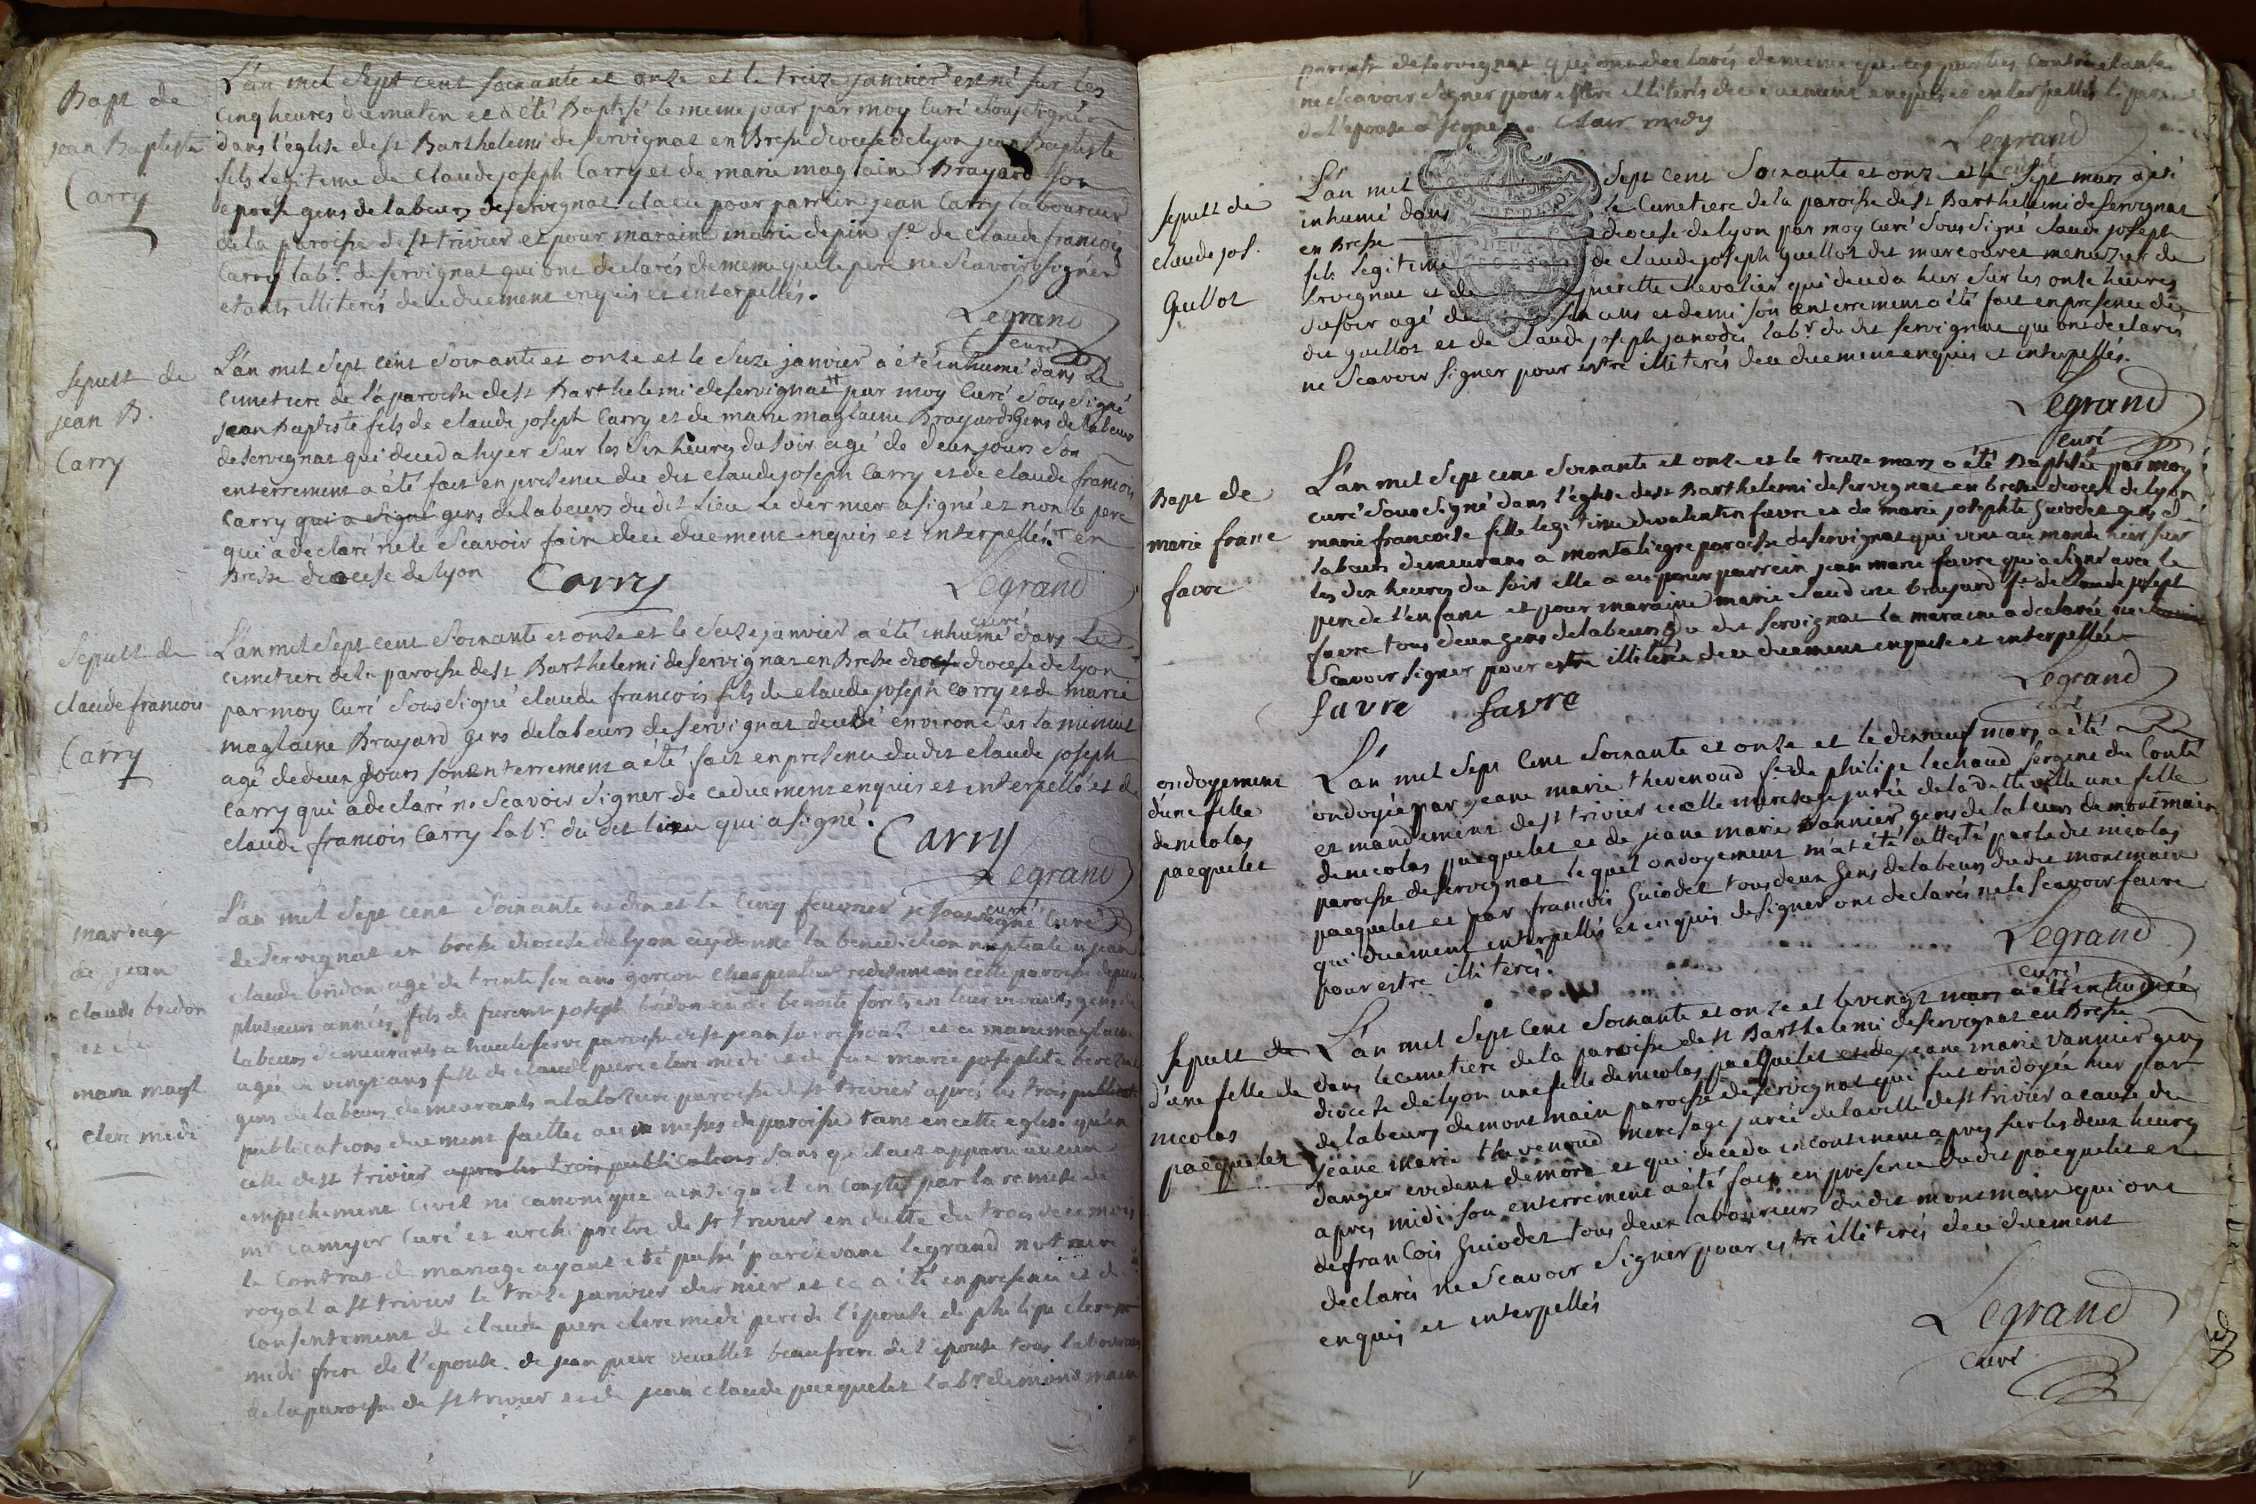 Bapt de
jean Baptiste
Carry
L'an mil sept cent soixante et onze et le treize janvier est né sur les
cinq heures du matin et a été Baptisé le meme jour par moy Curé soussigné
dans l'église de st Barthelemi de servignat en Bresse diocese de lyon jean Baptiste
fils legitime de Claude joseph Carry et de marie maglaine Brayard son
epouse gens de labeurs de servignat il a eu pour parrein jean Carry laboureur
de la paroisse de st trivier et pour maraine marie depin fe de claude francois
Carry labr de servignat qui ont declarés de meme que le pere ne scavoir signer
etants illiterés de ce duement enquis et interpellés.
Legrand
curé
sepult de
jean B.
Carry
L'an mil sept cent soixante et onze et le seize janvier a été inhumé dans le
cimetiere de la paroisse de st Barthelemi de servignat par moy Curé soussigné
jean Baptiste fils de claude joseph Carry et de marie maglaine Brayard gens de labeurs
de servignat qui deceda hyer sur les six heures du soir agé de deux jours son
enterrement a été fait en presence du dit claude joseph Carry et de claude francois
Carry qui a signé gens de labeurs du dit lieu le dernier a signé et non le pere
qui a declaré ne le scavoir faire de ce duement enquis et interpellés. en
Bresse diocese de lyon
Carry
Legrand
curé
sepult de
claude francois
Carry
L'an mil sept cent soixante et onze et le seize janvier a été inhumé dans le
cimetiere de la paroisse de st Barthelemi de servignat en Bresse diocese de lyon
par moy Curé soussigné claude francois fils de claude joseph Carry et de marie
maglaine Brayard gens de labeurs de servignat decedé environ sur la minuit
agé de deux jours son enterrement a été fait en presence du dit claude joseph
Carry qui a declaré ne scavoir signer de ce duement enquis et interpellé et de
claude francois Carry labr du dit lieu qui a signé.
Carry
Legrand
curé
mariage
de jean
claude bridon
et de
marie magl
clere midi
L'an mil sept cent soixante et dix et le cinq fevrier je soussigné Curé
de servignat en bresse diocese de lyon ay donné la benediction nuptiale a jean
claude bridon agé de trente six ans garcon charpentier residant en cette paroisse depuis
plusieurs années fils de joseph bridon et de benoite en leur vivants gens de
labeurs demeurants a paroisse de st jean sur et a marie maglaine
agée de vingt ans fille de claude pierre clere midi et de marie josephte
gens de labeurs demeurants a paroisse de st trivier après les trois
publications duement faittes aux messes de paroisse tant en cette eglise qu'en
celle de st trivier apres les trois publications sans qu'il aye apparu aucun
empechement civil ni canonique ainsi qu'il en conste par la remise de
mr camyer Curé et archipretre de st trivier en datte du trois de ce mois
le contrat de mariage ayant été passé pardevant legrand notaire
royal a st trivier le treize janvier dernier et ce a été en presence et du
consentement de claude pierre clere midi pere de l'épouse de philipe clere
midi frere de l'epouse de jean pierre veuillet beaufrere de l'epouse tous laboureurs
de la paroisse de st trivier et de jean claude pacquelet labr de mont main
paroisse de servignat qui ont declarés de meme que les parties contractantes
ne scavoir signer pour estre illiterés de ce duement enquis et interpellés le pere
de l'epouse a signé. Clair midy
Legrand
sepult de
claude jos.
Guillot
L'an mil sept cent soixante et onze et le sept mars a été
inhumé dans le Cimetiere de la paroisse de st Barthelemi de servignat
en Bresse diocese de lyon par moy Curé soussigné claude joseph
fils legitime de claude joseph guillot dit marcouret menuzier de
servignat et de chevalier qui deceda hier sur les onze heures
du soir agé de ans et demi son enterrement a été fait en presence du
dit guillot et de claude joseph janodi labr du dit servignat qui ont declarés
ne scavoir signer pour estre illiterés de ce duement enquis et interpellés.
Legrand
curé
Bapt de
marie franc
favre
L'an mil sept cent soixante et onze et le treize mars a été Baptisée par moy
curé soussigné dans l'église de st Barthelemi de servignat en bresse diocese de lyon
marie francoise fille legitime de valentin favre et de marie josephte guiodet gens de
labeurs demeurans a montaliegre paroisse de servignat qui vint au monde hier sur
les dix heures du soir elle a eu pour parrein jean marie favre qui a signé avec le
pere de l'enfant et pour maraine marie claudine brayard fe de claude josept
favre tous deux gens de labeurs du dit servignat la maraine a declarée ne
scavoir signer pour estre illiterée de ce duement enquise et interpellée
favre favre
Legrand
curé
ondoyement
d'une fille
de nicolas
pacquelet
L'an mil sept cent soixante et onze et le dixneuf mars a été
ondoyée par jeane marie thevenoud fe de philipe lechaud sergent du Comté
et mandement de st trivier icelle mere sage jurée de la ditte ville une fille
de nicolas pacquelet et de jeane marie vannier gens de labeurs de mont main
paroisse de servignat le quel ondoyement m'a été attesté par le dit nicolas
pacquelet et par francois guiodet tous deux gens de labeurs du dit mont main
qui duement interpellés et enquis de signer ont declarés ne le scavoir faire
pour estre illiterés.
Legrand
curé
sepult de
d'une fille de
nicolas
pacquelet
L'an mil sept cent soixante et onze et le vingt mars a été inhumée
dans le cimetiere de la paroisse de st Barthelemi de servignat en Bresse
diocese de lyon une fille de nicolas pacquelet et de jeane marie vannier gens
de labeurs de mont main paroisse de servignat qui fut ondoyée hier par
jeane marie thevenoud mere sage jurée de la ville de st trivier a cause du
danger evident de mort et qui deceda incontinent apres sur les deux heures
apres midi son enterrement a été fait en presence du dit pacquelet et
de francois guiodet tous deux laboureurs du dit mont main qui ont
declarés ne scavoir signer pour estre illiterés de ce duement
enquis et interpellés
Legrand
curé